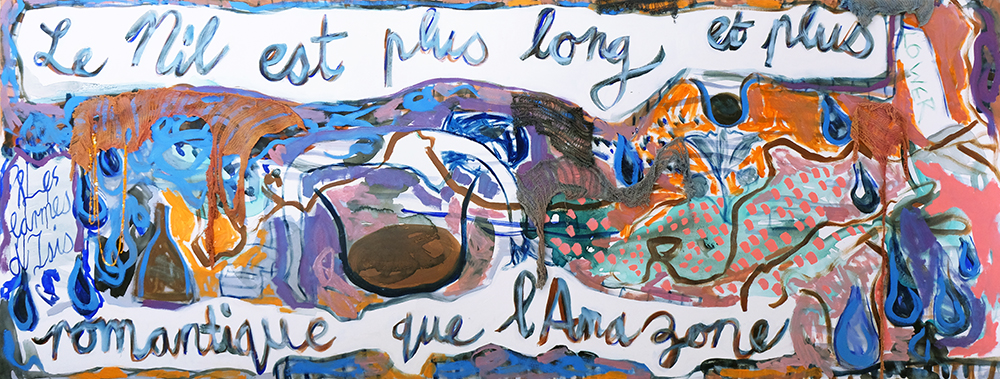 Le Nil est plus long et plus
Les
larmes
d'Isis
romantique que l'Amazone